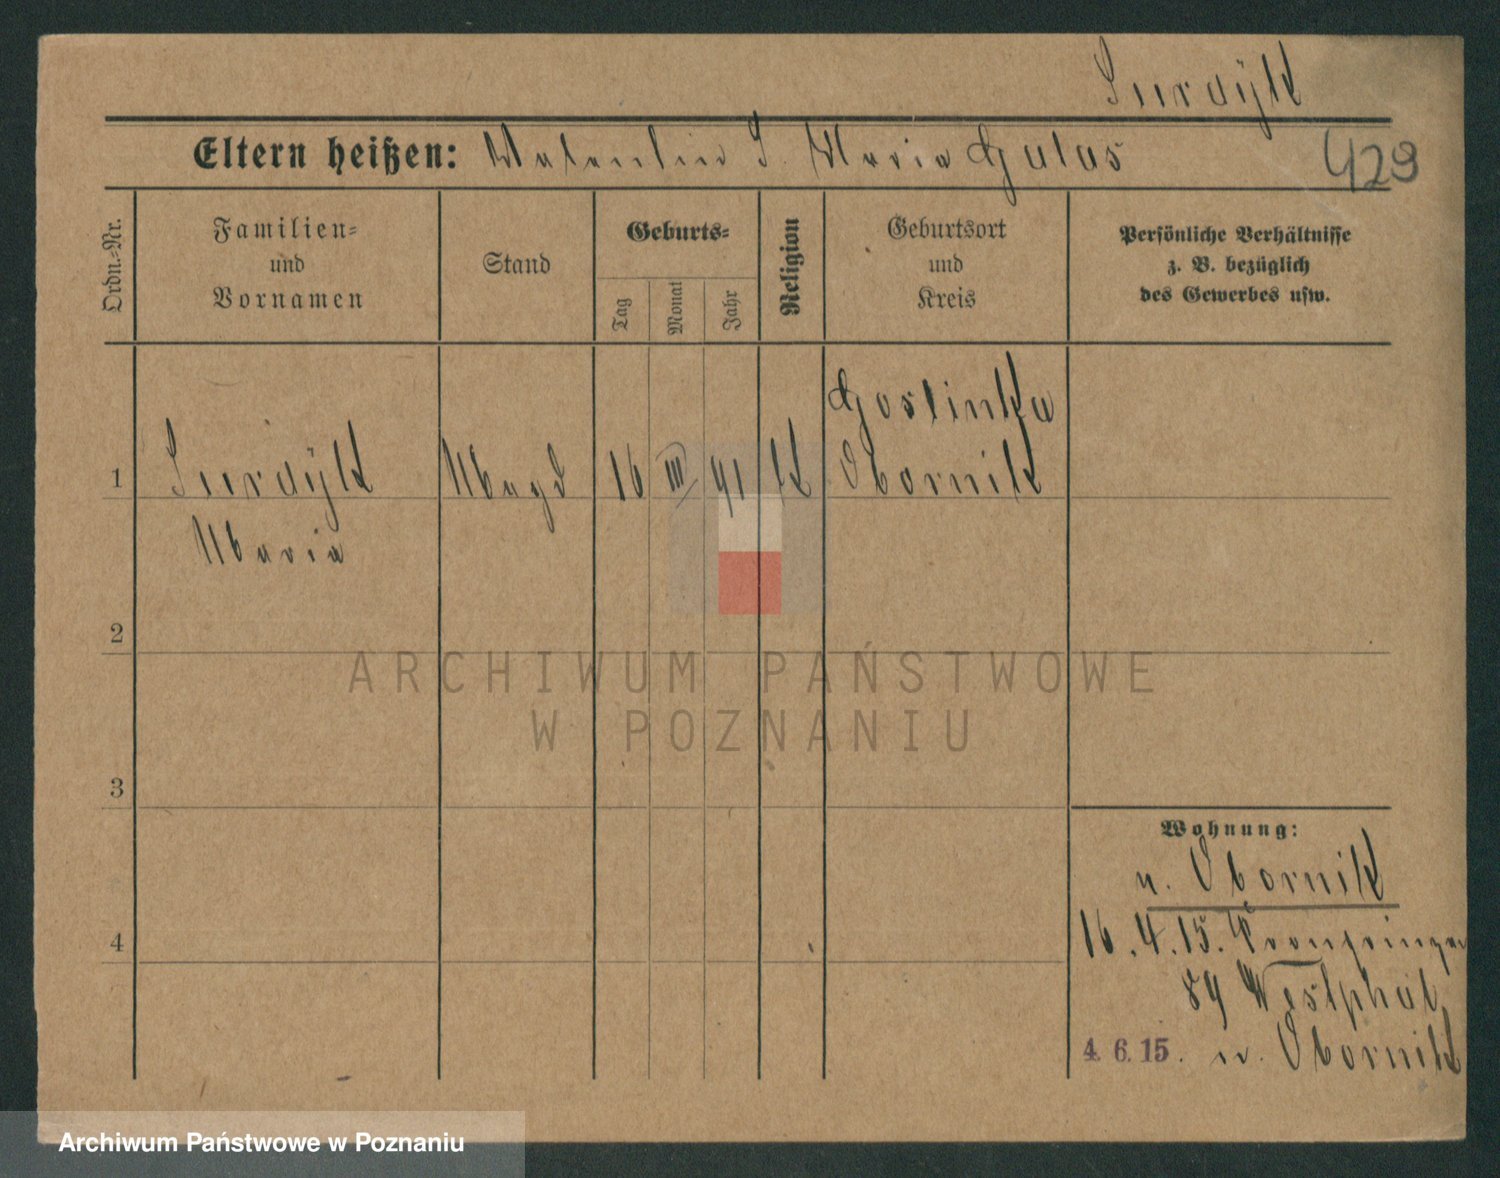 Surdÿk
Eltern heißen: Valentin S. Maria Galas
429
Ordn.-Nr.
Familien-
und
Vornamen
Stand
Geburts-
Tag
Monat
Jahr
Religion
Geburtsort
und
Kreis
Persönliche Verhältnisse
z. B. bezüglich
des Gewerbes usw.
1
Surdÿk
Maria
Magd
16
III
91
K
Goslinka
Obornik
2
3
4
Wohnung:
n. Obornik
16.4.15. Kronprinzen
89 Westphal
4. 6. 15. n. Obornik
ARCHIWUM PAŃSTWOWE
W POZNANIU
Archiwum Państwowe w Poznaniu